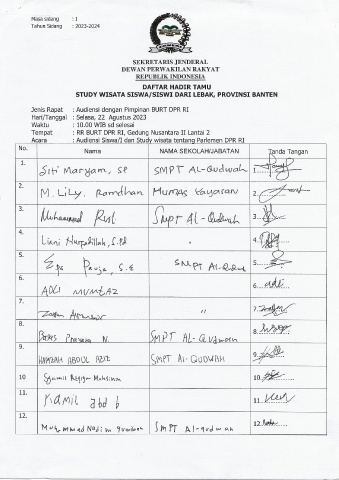 Masa sidang : I
Tahun Sidang : 2023-2024
SEKRETARIS JENDERAL
DEWAN PERWAKILAN RAKYAT
REPUBLIK INDONESIA
DAFTAR HADIR TAMU
STUDY WISATA SISWA/SISWI DARI LEBAK, PROVINSI BANTEN
Jenis Rapat : Audiensi dengan Pimpinan BURT DPR RI
Hari/Tanggal : Selasa, 22 Agustus 2023
Waktu : 10.00 WIB sd selesai
Tempat : RR BURT DPR RI, Gedung Nusantara II Lantai 2
Acara : Audiensi Siswa/I dan Study wisata tentang Parlemen DPR RI
No. Nama NAMA SEKOLAH/JABATAN Tanda Tangan
1. Siti Maryam, SE SMPT AL-Qudwah 1
2. M. Lily Ramdhan Humas Yayasan 2
3. Muhammad SMPT Al-Qudwah 3
4. Liani Nurfadillah, S.Pd " 4
5. S.E SMPT Al-Qudwah 5
6. ADLI MUMTAZ 6. adli
7. " 7
8. N. SMPT AL-Qudwah 8
9. HAMZAH ABDUL AZIZ SMPT Al-QUDWAH 9
10 10
11. Kamil abd b 11
12. Muhammad SMPT Al-qudwah 12